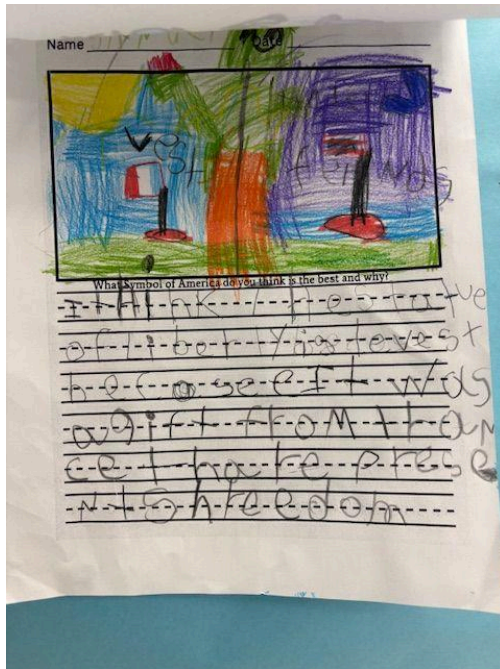 Name Date
vest friends
What Symbol of America do you think is the best and why?
I tHink the statue
of liberty is tevest
becouse It was
a gift froM fran
ce thatre prese
nts freedom